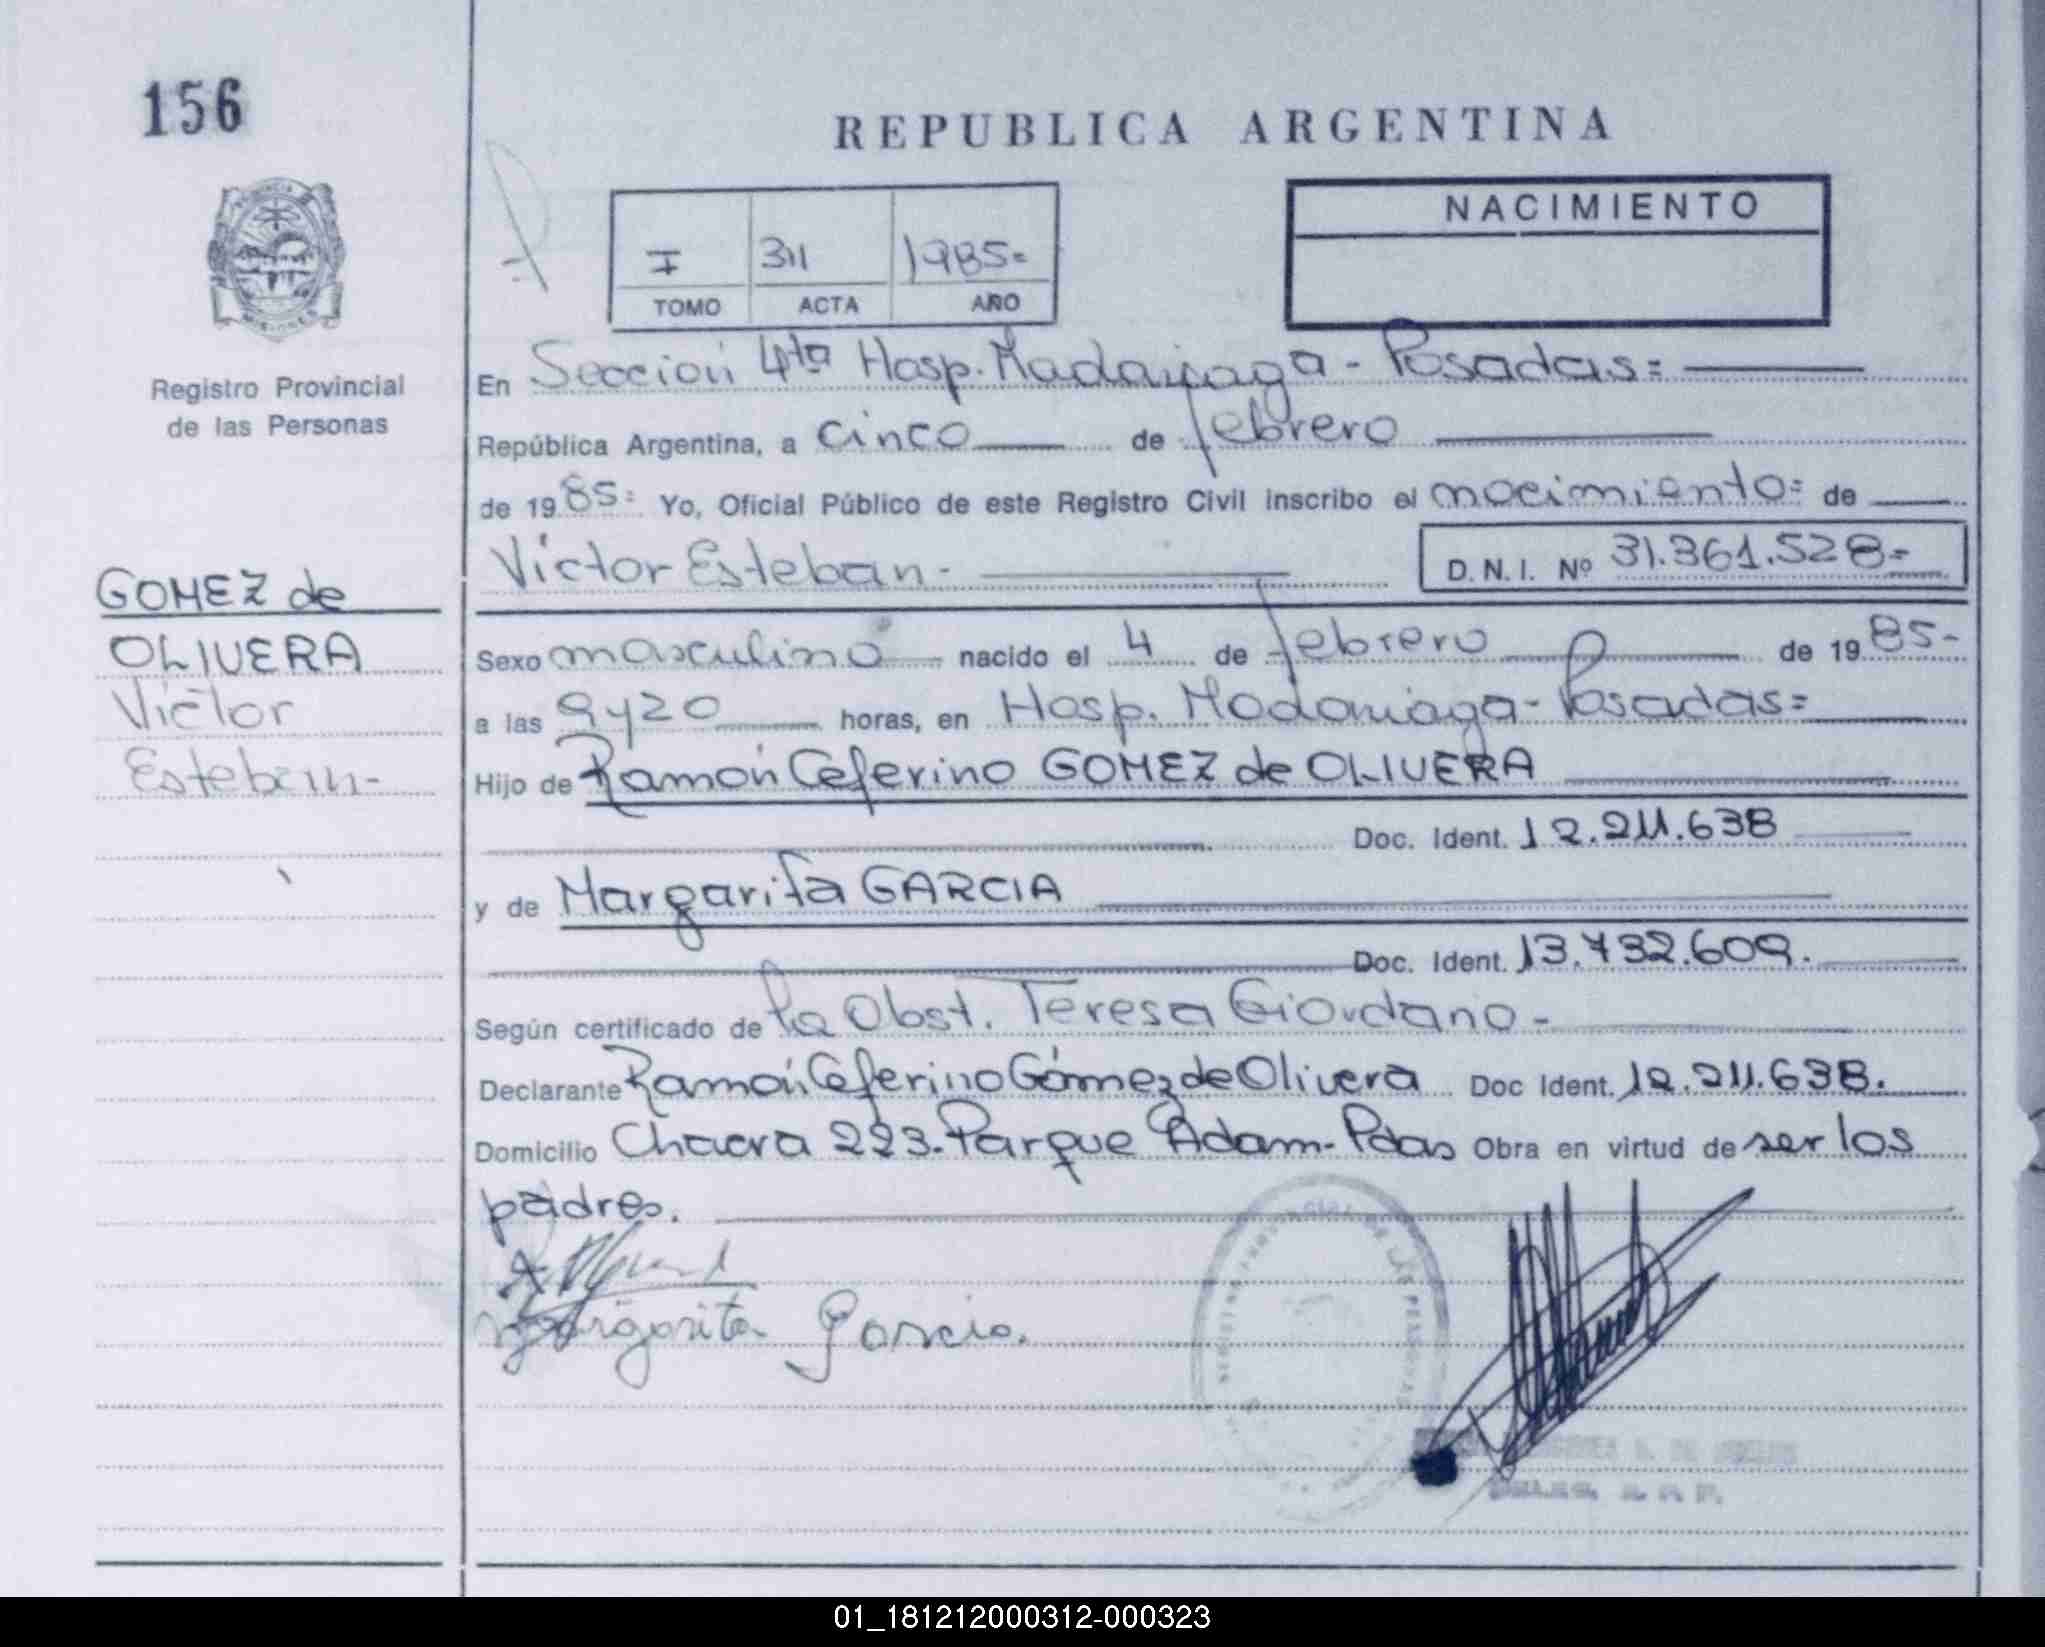 156
REPUBLICA ARGENTINA
NACIMIENTO
I 311 1985=
TOMO ACTA AÑO
Registro Provincial
de las Personas
En Sección 4ta Hosp. Madariaga - Posadas=
República Argentina, a cinco de febrero
de 1985= Yo, Oficial Público de este Registro Civil inscribo el nacimiento= de
Víctor Esteban- D.N.I. Nº 31.361.528=
GOMEZ de
OLIVERA
Víctor
Esteban-
Sexo masculino nacido el 4 de febrero de 1985-
a las 9y20 horas, en Hosp. Madariaga - Posadas=
Hijo de Ramón Ceferino GOMEZ de OLIVERA
Doc. Ident. 12.211.638
y de Margarita GARCIA
Doc. Ident. 13.732.609.
Según certificado de la Obst. Teresa Giordano-
Declarante Ramón Ceferino Gómez de Olivera Doc Ident. 12.211.638.
Domicilio Chacra 223.Parque Adam-Pdas Obra en virtud de ser los
padres.
Margarita Garcia.
DE LAS PERSONAS
01_181212000312-000323